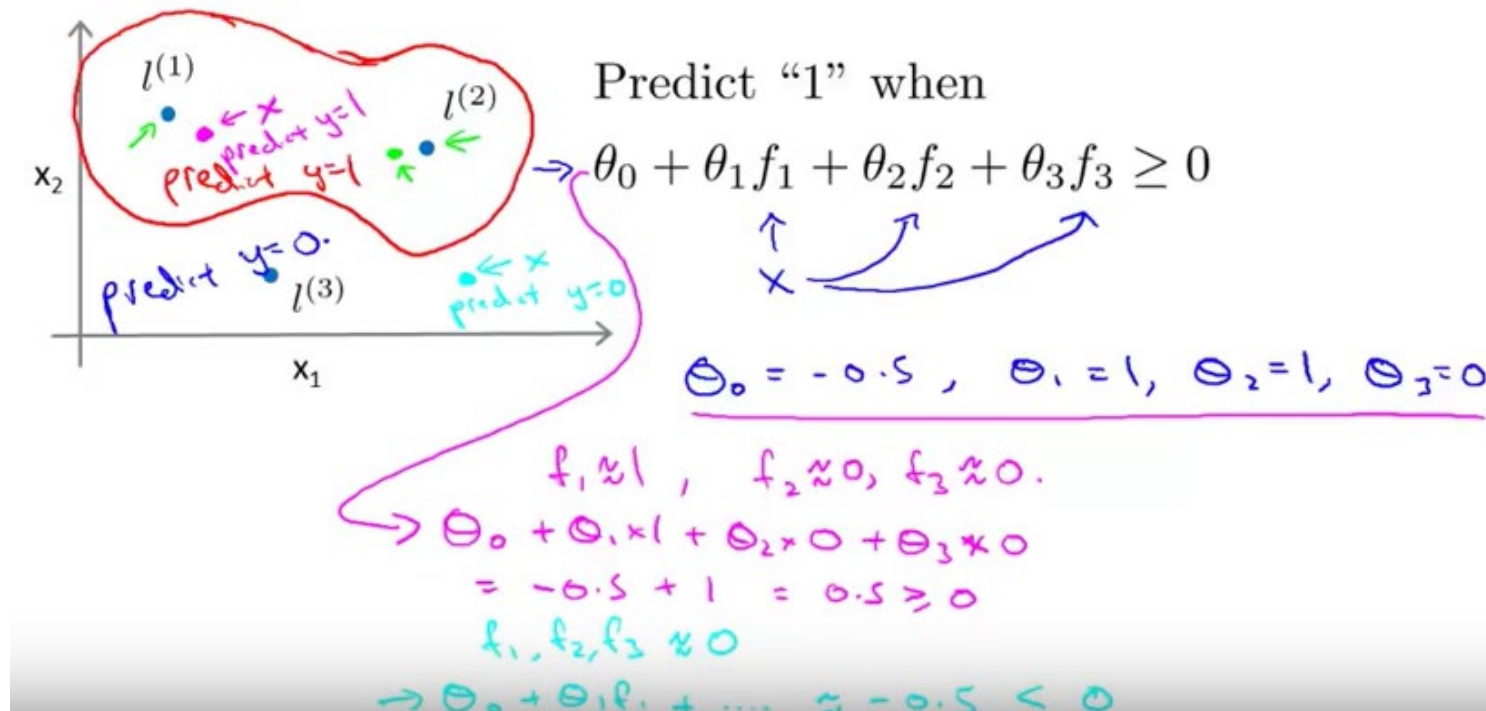 l^{(1)}
← x
predict y=1
l^{(2)}
predict y=1
x₂
predict y=0.
l^{(3)}
← x
predict y=0
x₁
Predict “1” when
→ θ₀ + θ₁f₁ + θ₂f₂ + θ₃f₃ ≥ 0
x
θ₀ = -0.5, θ₁=1, θ₂=1, θ₃=0
f₁≈1, f₂≈0, f₃≈0.
→ θ₀ + θ₁×1 + θ₂×0 + θ₃×0
= -0.5 + 1 = 0.5 ≥ 0
f₁, f₂, f₃ ≈ 0
→ θ₀ + θ₁f₁ + .... ≈ -0.5 < 0